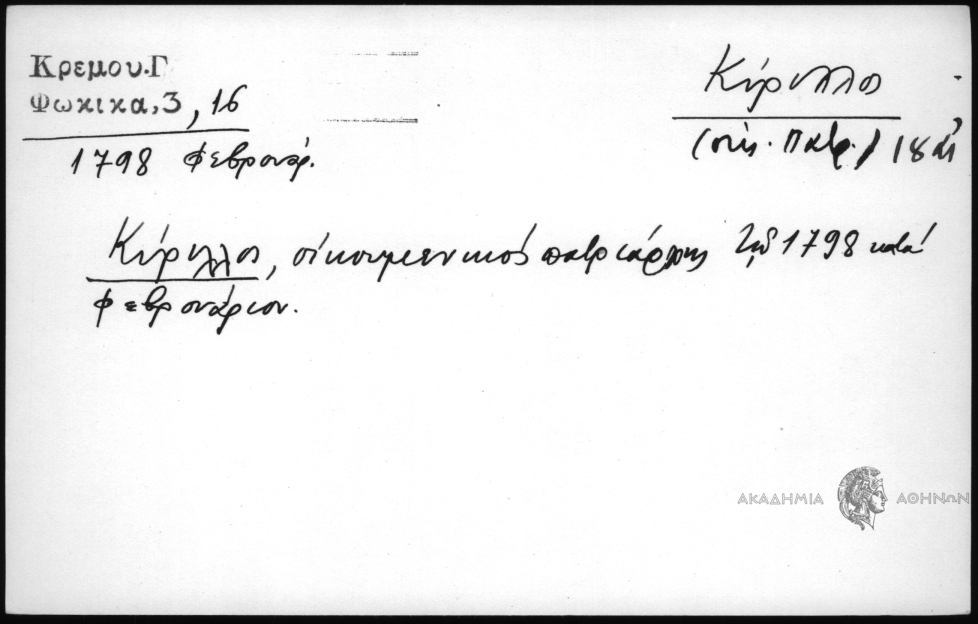 Κρεμου.Γ
Φωκικα,3, 16
1798 Φεβρουάρ.
Κύριλλος
(οἰκ. Πατρ.) 18 αἰ
Κύριλλος, οἰκουμενικὸς πατριάρχης τῷ 1798 κατὰ
Φεβρουάριον.
ΑΚΑΔΗΜΙΑ ΑΘΗΝΩΝ